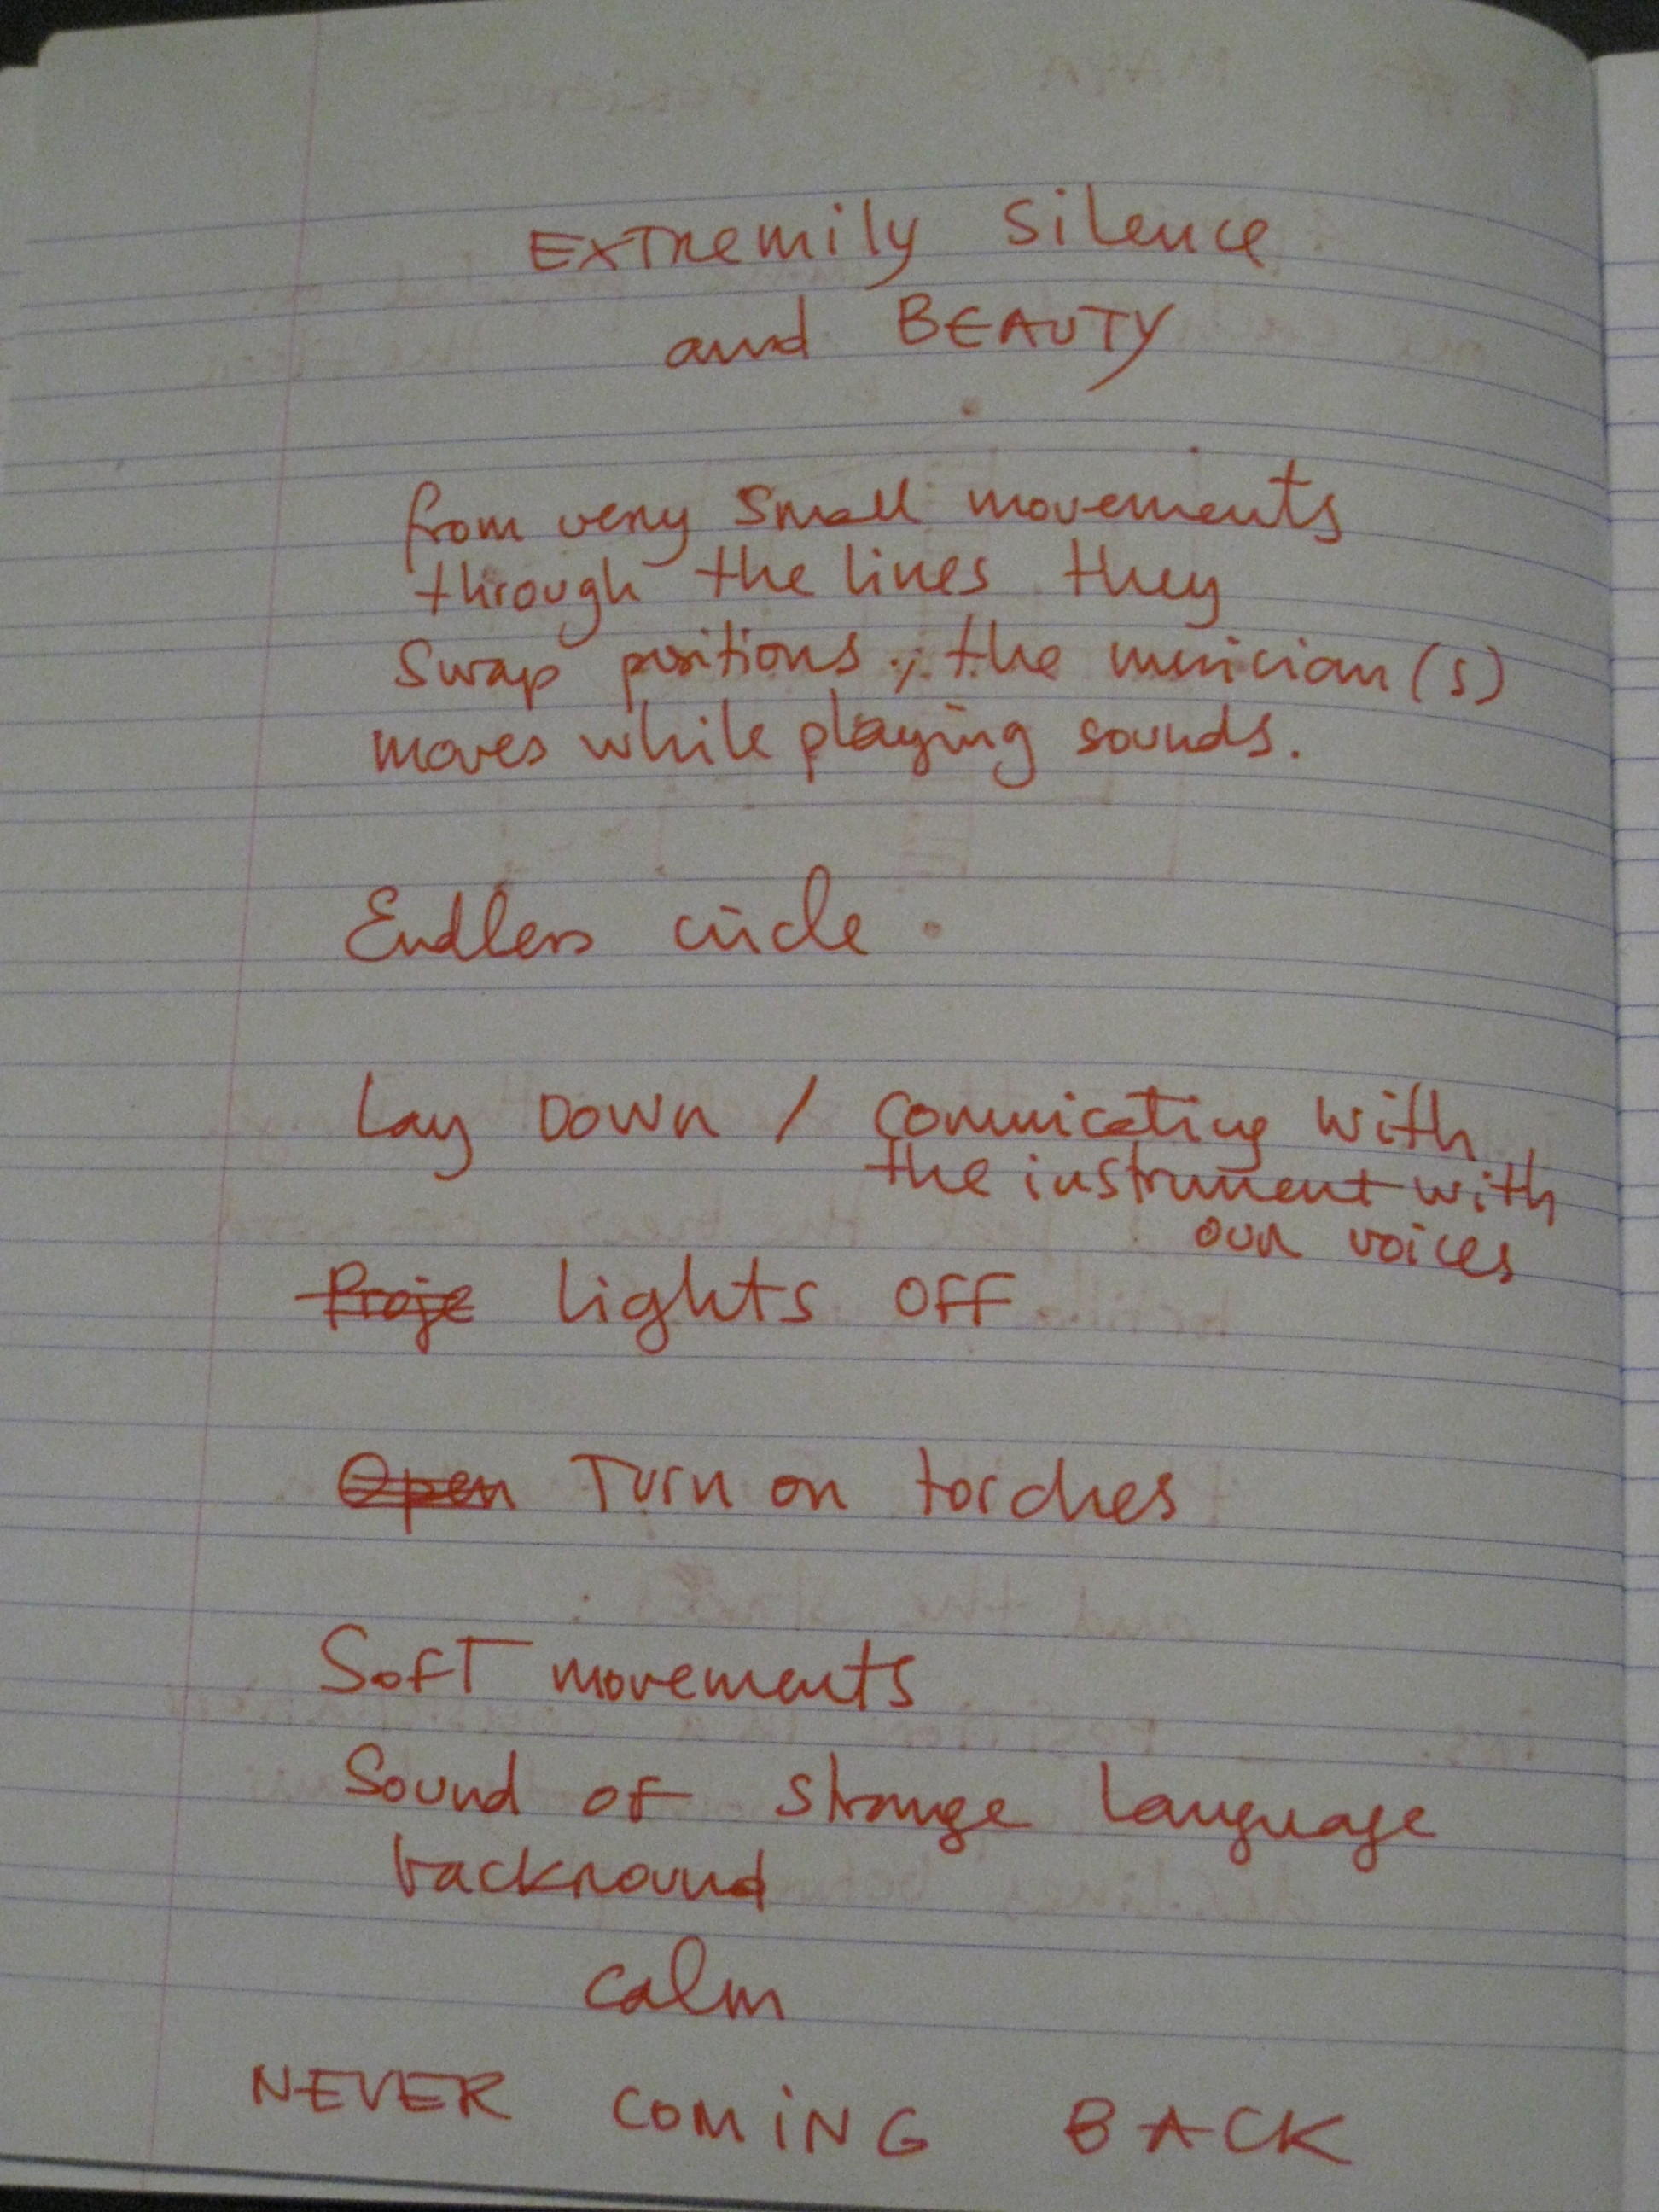 EXTremily Silence
and BEAUTY
from very small movements
through the lines they
Swap positions., the musician(s)
moves while playing sounds.
Endless circle.
Lay DOWN / comunicating with
the instrument with
our voices
Proje lights OFF
Open Turn on torches
SofT movements
Sound of strange language
backround
calm
NEVER COMiNG BACK